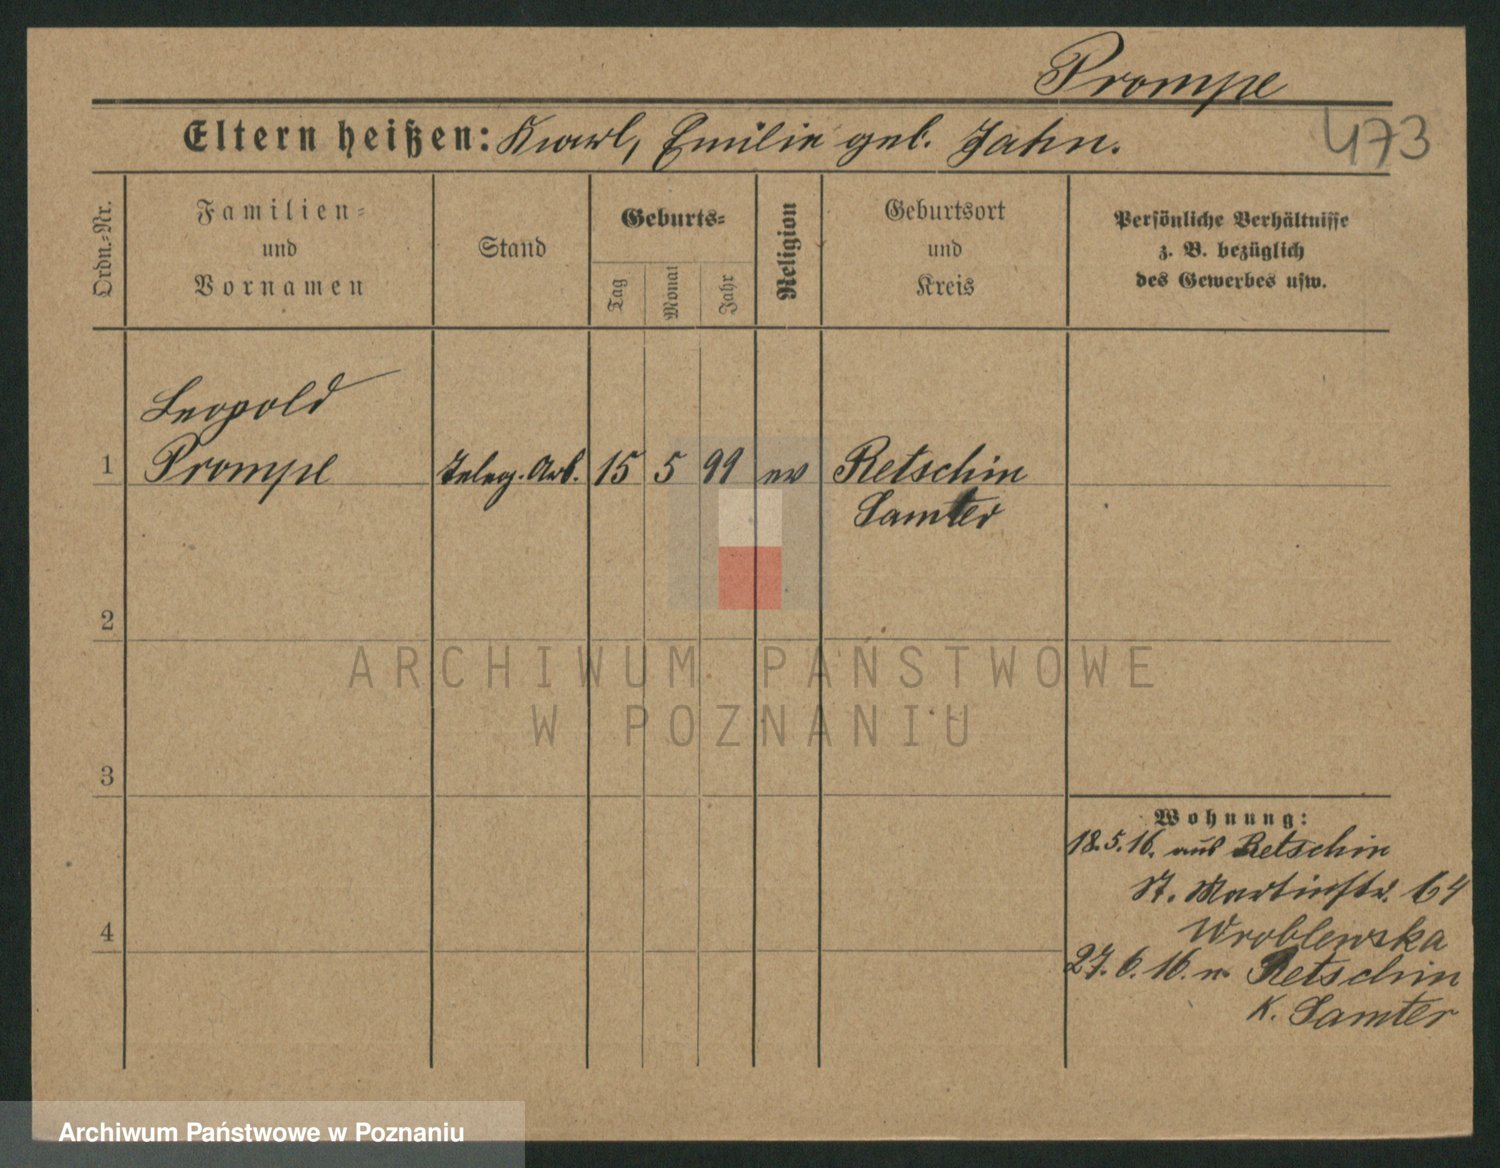 Prompe
Eltern heißen: Karl, Emilie geb. Jahn.
473
Ordn.-Nr.
Familien-
und
Vornamen
Stand
Geburts-
Tag
Monat
Jahr
Religion
Geburtsort
und
Kreis
Persönliche Verhältnisse
z. B. bezüglich
des Gewerbes usw.
Leopold
1 Prompe Teleg. Arb. 15 5 99 ev Retschin
Samter
2
ARCHIWUM PAŃSTWOWE
W POZNANIU
3
Wohnung:
18.5.16. aus Retschin
St. Martinstr. 64
4
Wroblewska
27.6.16. n. Retschin
K. Samter
Archiwum Państwowe w Poznaniu